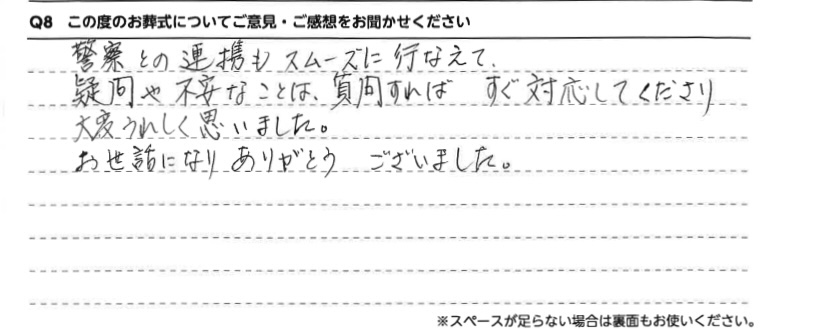 Q8 この度のお葬式についてご意見・ご感想をお聞かせください
警察との連携もスムーズに行なえて、
疑問や不安なことは、質問すれば すぐ対応してくださり
大変うれしく思いました。
お世話になりありがとう ございました。
※スペースが足らない場合は裏面もお使いください。